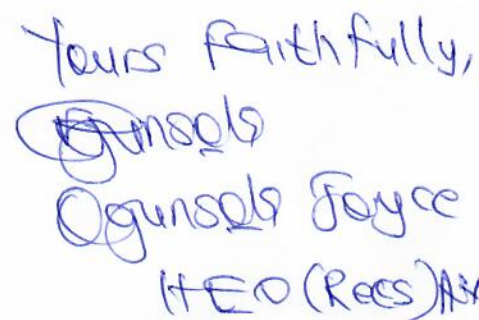 Yours Faithfully,
Ogunsolo
Ogunsolo Joyce
HEO (Recs)